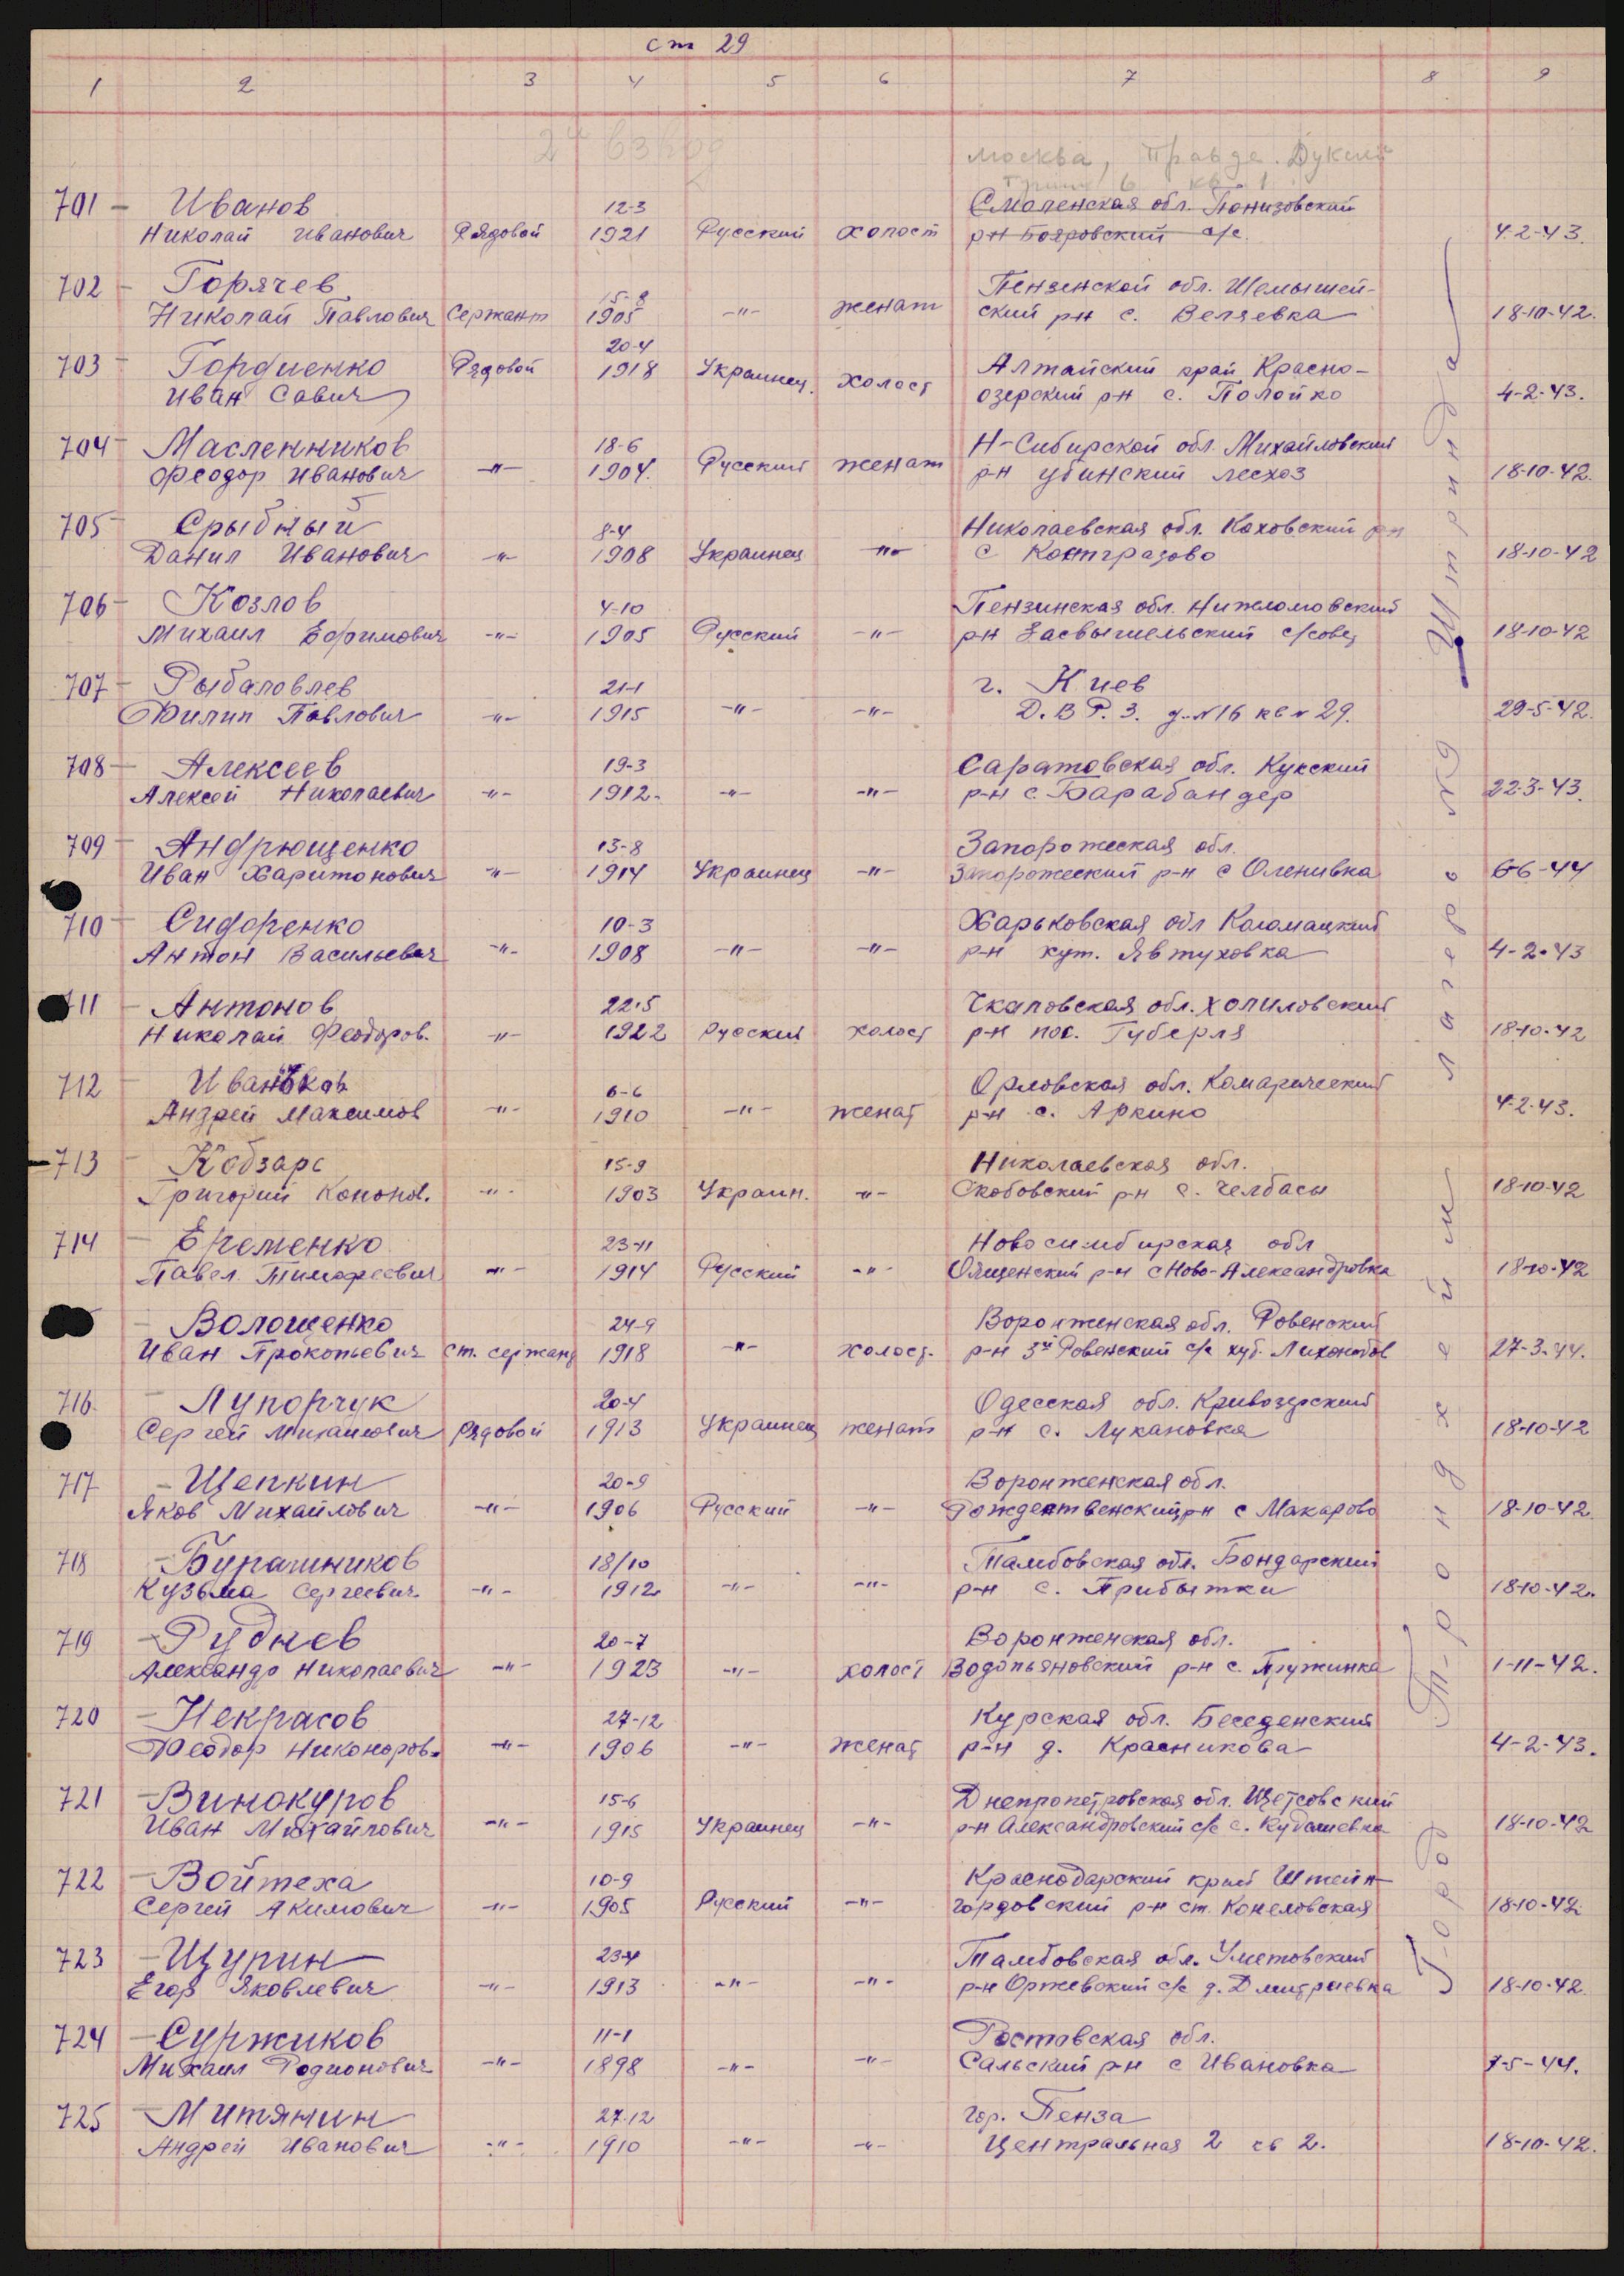 ст 29
1 2 3 4 5 6 7 8 9
2й взвод
москва, Правде.
701 – Иванов 12-3 Смоленская обл. Понизовский
Николай Иванович Рядовой 1921 Русский холост р-н Бояровский с/с. 4-2-43.
702 – Горячев 15-8 Пензенской обл. Шемышей-
Николай Павлович Сержант 1905 -"- женат ский р-н с. Веляевка 18-10-42.
703 – Гордиенко Рядовой 20-4 1918 Украинец. холост Алтайский край Красно-
Иван Савич озерский р-н с. Полойко 4-2-43.
704 – Масленников 18-6 Н-Сибирской обл. Михайловский
Феодор Иванович -"- 1904. Русский женат р-н убинский лесхоз 18-10-42.
705 – Срыбный 8-4 Николаевская обл. Каховский р-н
Данил Иванович -"- 1908 Украинец -"- с 18-10-42
706 – Козлов 4-10 Пензинская обл. Нижломовский
Михаил Ефимович -"- 1905 Русский -"- р-н с/совет 18-10-42
707 – Рыбаловлев 21-1 г. Киев
Филип Павлович -"- 1915 -"- -"- Д. В Р. З. д-№16 кв №29. 29-5-42.
708 – Алексеев 19-3 Саратовская обл. Куксский
Алексей Николаевич -"- 1912. -"- -"- р-н с. Барабандер 22-3-43.
709 – Андрющенко 13-8 Запорожская обл.
Иван Харитонович -"- 1914 Украинец -"- Запорожеский р-н с Оленивка 6-6-44
710 – Сидоренко 10-3 Харьковская обл Коломацкий
Антон Васильевич -"- 1908 -"- -"- р-н хут. Явтуховка 4-2-43
711 – Антонов 22-5 Чкаловская обл. Холиловский
Николай Феодоров. -"- 1922 Русский холост р-н пос. Губерля 18-10-42
712 6-6 Орловская обл. Комарический
Андрей Максимов -"- 1910 -"- женат р-н с. Аркино 4-2-43.
713 – Кобзарс 15-9 Николаевская обл.
Григорий Кононов. -"- 1903 Украин. -"- Скобовский р-н с. Челбасы 18-10-42
714 – Еременко 23-11 Новосимбирская обл
Павел Тимофеевич -"- 1914 Русский -"- р-н с Ново-Александровка 18-10-42
– Волошенко 24-9 Воронженская обл. Ровенский
Иван Прокопьевич ст. сержант 1918 -"- холост. р-н 3й Ровенский с/с хут. 27-3-44.
716. – Лупорчук 20-4 Одесская обл. Кривозерский
Сергей Михайлович Рядовой 1913 Украинец женат р-н с. Лукановка 18-10-42
717 – Щепкин 20-9 Воронженская обл.
Яков Михайлович -"- 1906 Русский -"- Рождественский р-н с Макарово 18-10-42.
718 – Бурашников 18/10 Тамбовская обл. Бондарский
Кузьма Сергеевич -"- 1912 -"- -"- р-н с. Прибытки 18-10-42.
719 – Руднев 20-7 Воронженская обл.
Александр Николаевич -"- 1923 -"- холост Водопьяновский р-н с. Пружинка 1-11-42.
720 – Некрасов 27-12 Курская обл. Беседенский
Феодор Никоноров. -"- 1906 -"- женат р-н д. Красникова 4-2-43.
721 – Винокуров 15-6 Днепропетровская обл.
Иван Михайлович -"- 1915 Украинец -"- р-н Александровский с/с с. Кудашевка 18-10-42
722 – Войтеха 10-9 Краснодарский край Штейн-
Сергей Акимович -"- 1905 Русский -"- гордовский р-н ст. Конеловская 18-10-42.
723 – Щурин 23-4 Тамбовская обл. Уметовский
Егор Яковлевич -"- 1913 -"- -"- р-н Оржевский с/с д. Дмитриевка 18-10-42.
724 – Суржиков 11-1 Ростовская обл.
Михаил Родионович -"- 1898 -"- -"- Сальский р-н с Ивановка 7-5-44.
725 – Митянин 27-12 гор. Пенза
Андрей Иванович -"- 1910 -"- -"- Центральная 2 кв 2. 18-10-42.
Город Трондхейм лагерь №9 Штринда